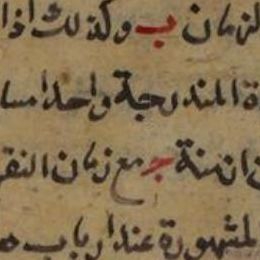 لزمان ب وكذلك اذا
ة المندرجة واحدا مسا
ازمنة ج مع زمان النقر
لمشهورة عند ارباب